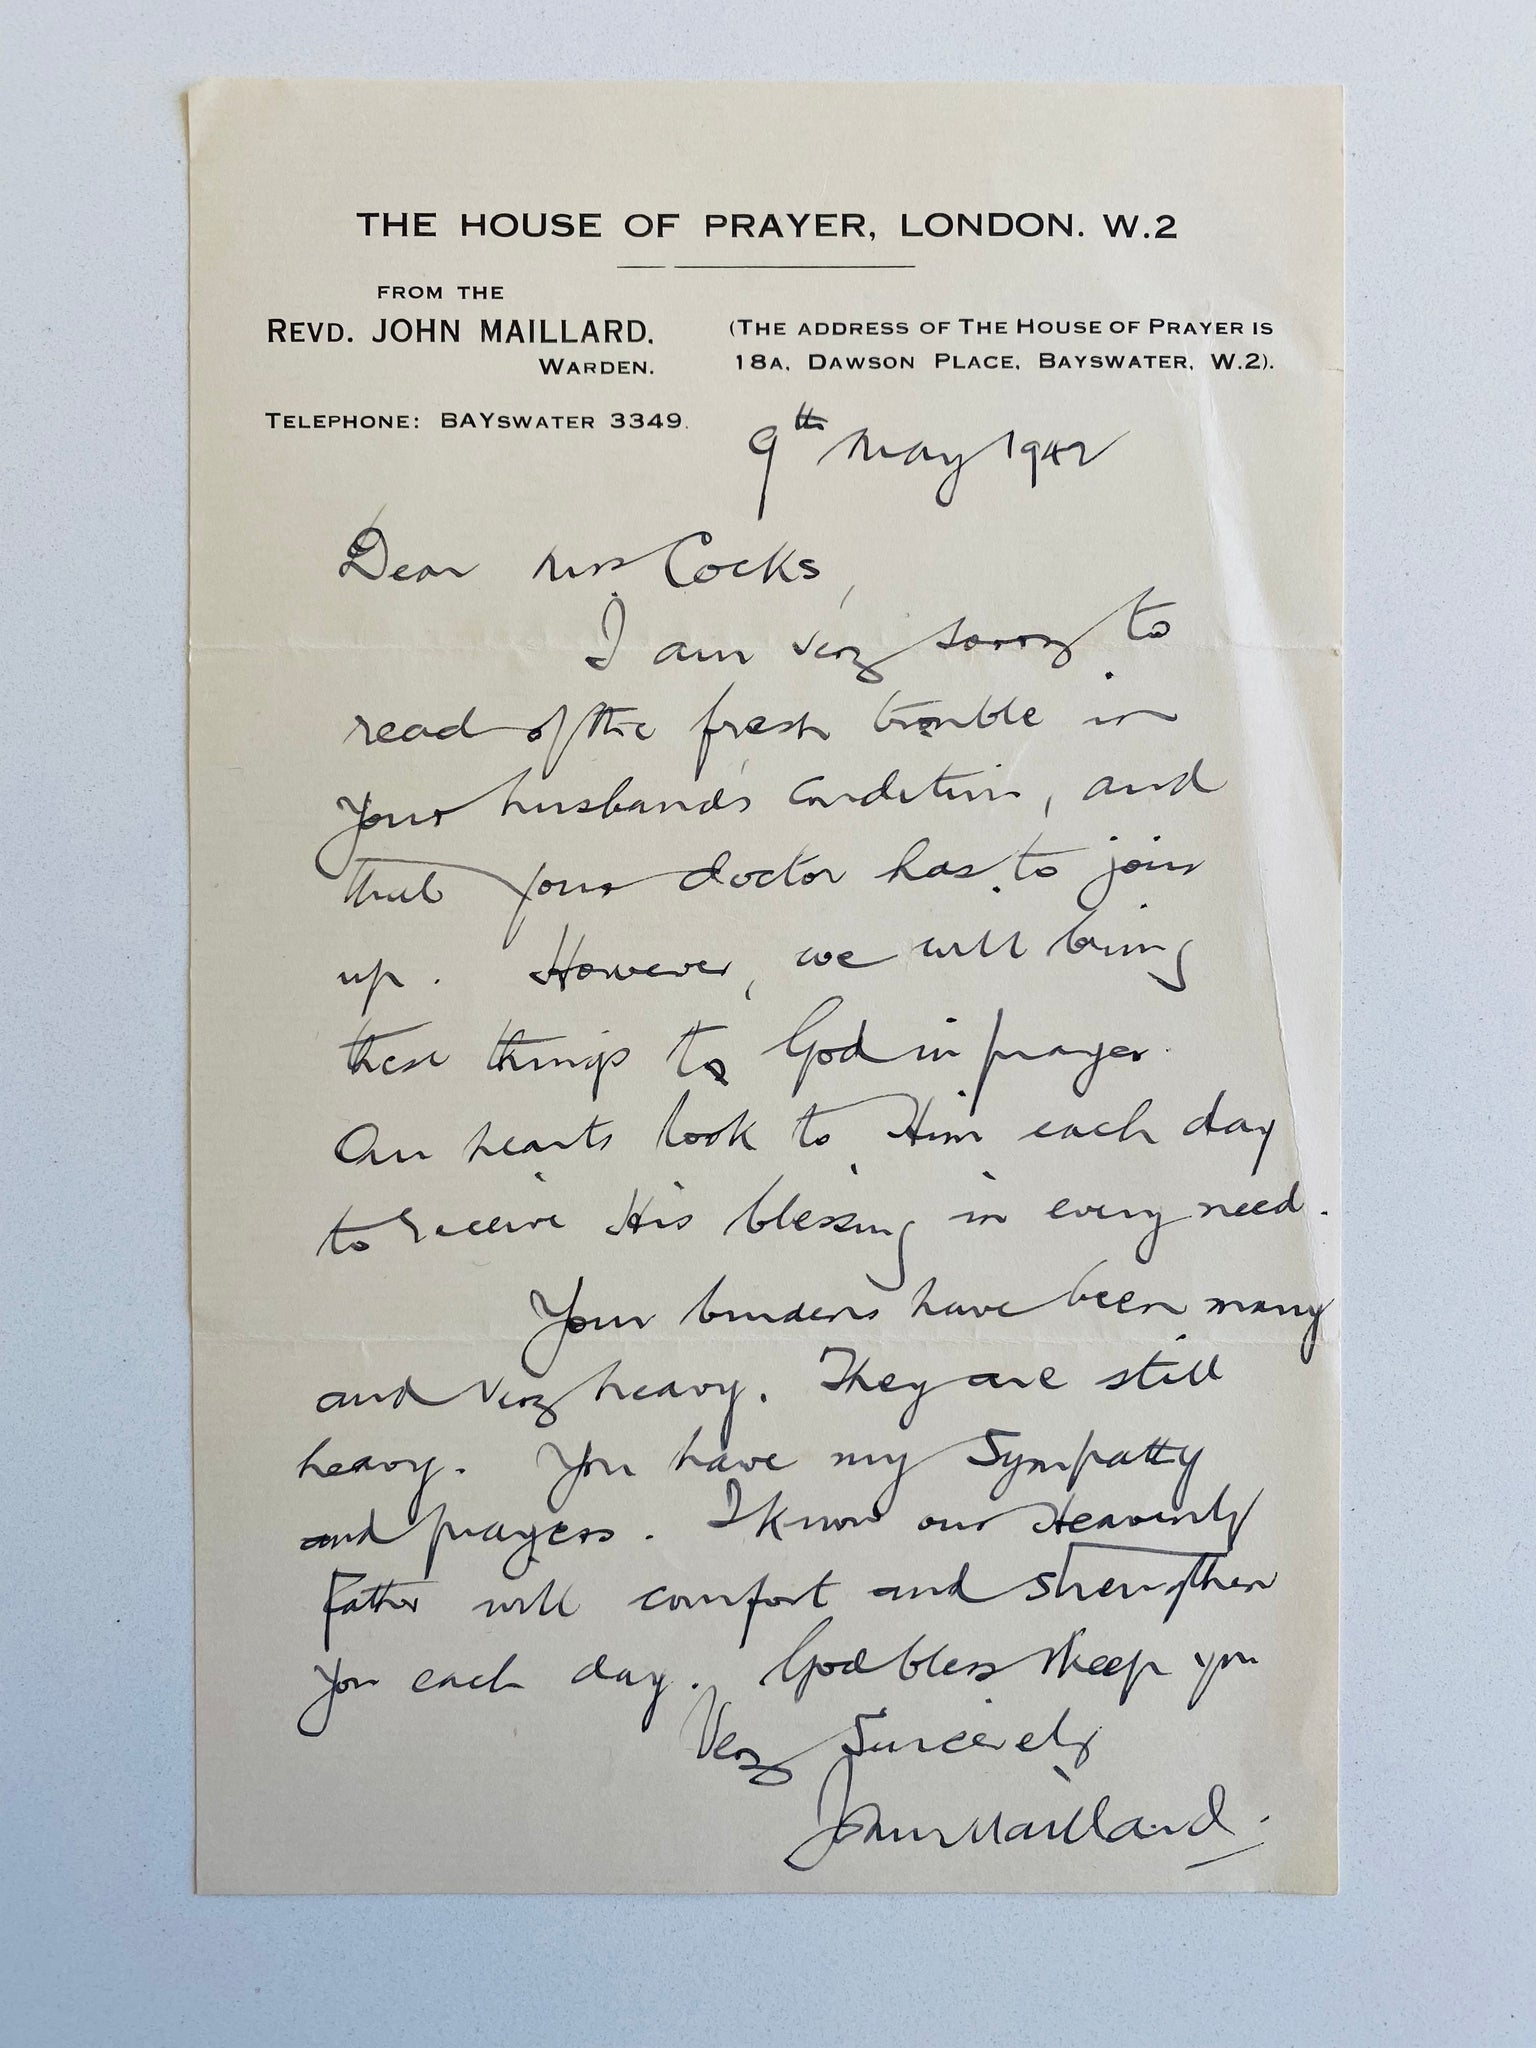 THE HOUSE OF PRAYER, LONDON. W.2
FROM THE
REVD. JOHN MAILLARD,
WARDEN.
(THE ADDRESS OF THE HOUSE OF PRAYER IS
18A, DAWSON PLACE, BAYSWATER, W.2).
TELEPHONE: BAYSWATER 3349.
9th May 1942
Dear Mrs Cocks,
I am very sorry to
read of the fresh trouble in
your husband's condition, and
that your doctor has to join
up. However, we will bring
these things to God in prayer.
Our hearts look to Him each day
to receive His blessing in every need.
Your burdens have been many
and very heavy. They are still
heavy. You have my sympathy
and prayers. I know our Heavenly
Father will comfort and strengthen
you each day. God bless & keep you
Very Sincerely
John Maillard.